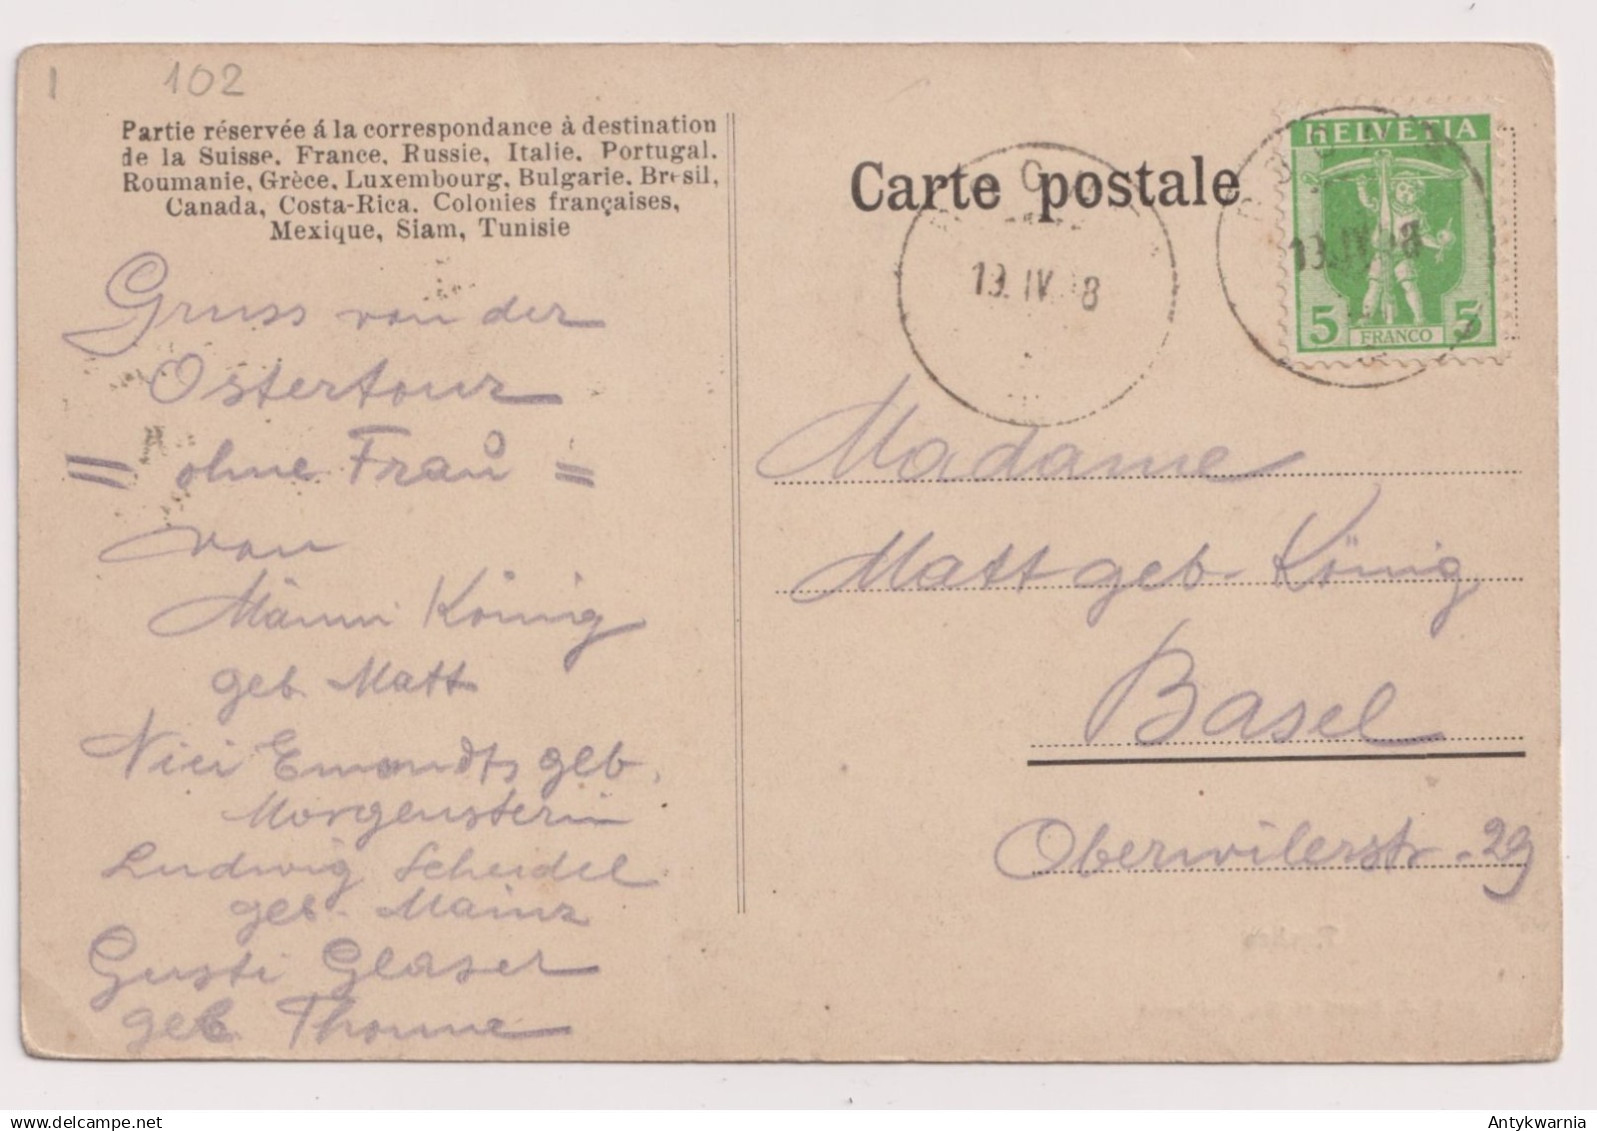 1 102
Partie réservée á la correspondance à destination
de la Suisse. France. Russie, Italie. Portugal.
Roumanie, Grèce, Luxembourg, Bulgarie. Bresil,
Canada, Costa-Rica. Colonies françaises,
Mexique, Siam, Tunisie
Gruss von der
Ostertour
= ohne Frau =
von
Männi König
geb. Matt
Nici Emondts geb.
Morgenstern
Ludwig Scheidel
geb. Mainz
Gusti Glaser
geb. Thomme
Carte postale
19. IV. 8
HELVETIA
19. IV. 08
5 FRANCO 5
Madame
Matt geb. König
Basel
Oberwilerstr. 29
Antykwarnia
delcampe.net